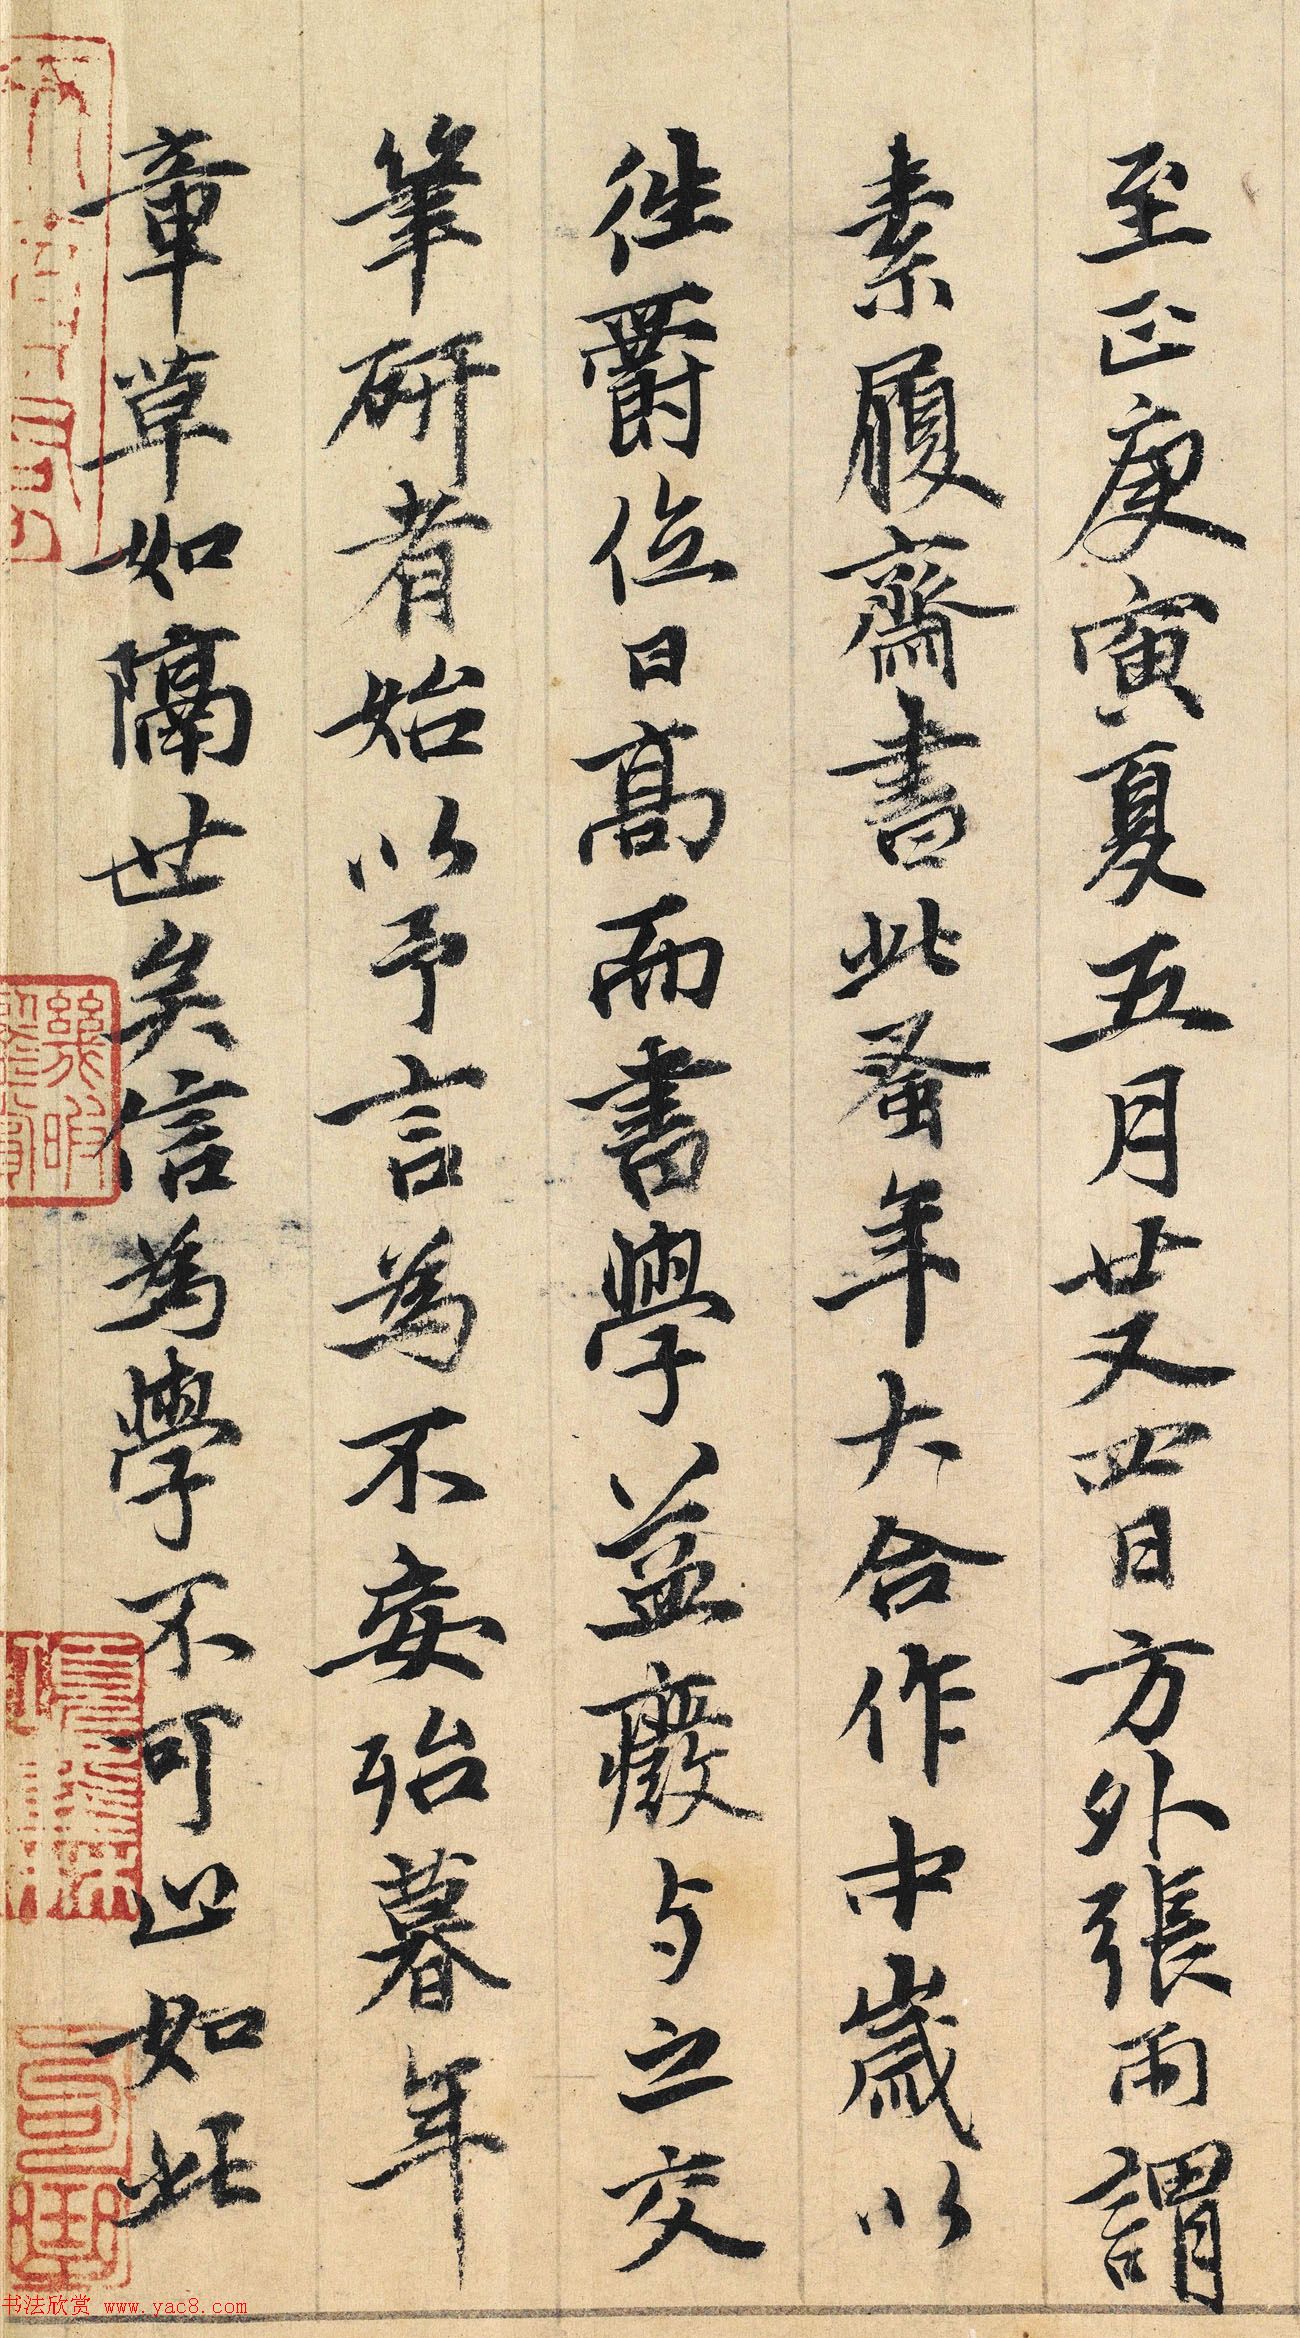 至正庚寅夏五月廿又四日方外張雨謂
素履齋書此蚤年大合作中歲以
往爵位日高而書學益癈与之交
筆研者始以予言為不妄殆暮年
章草如隔世矣信為學不可止如此
书法欣赏 www.yac8.com